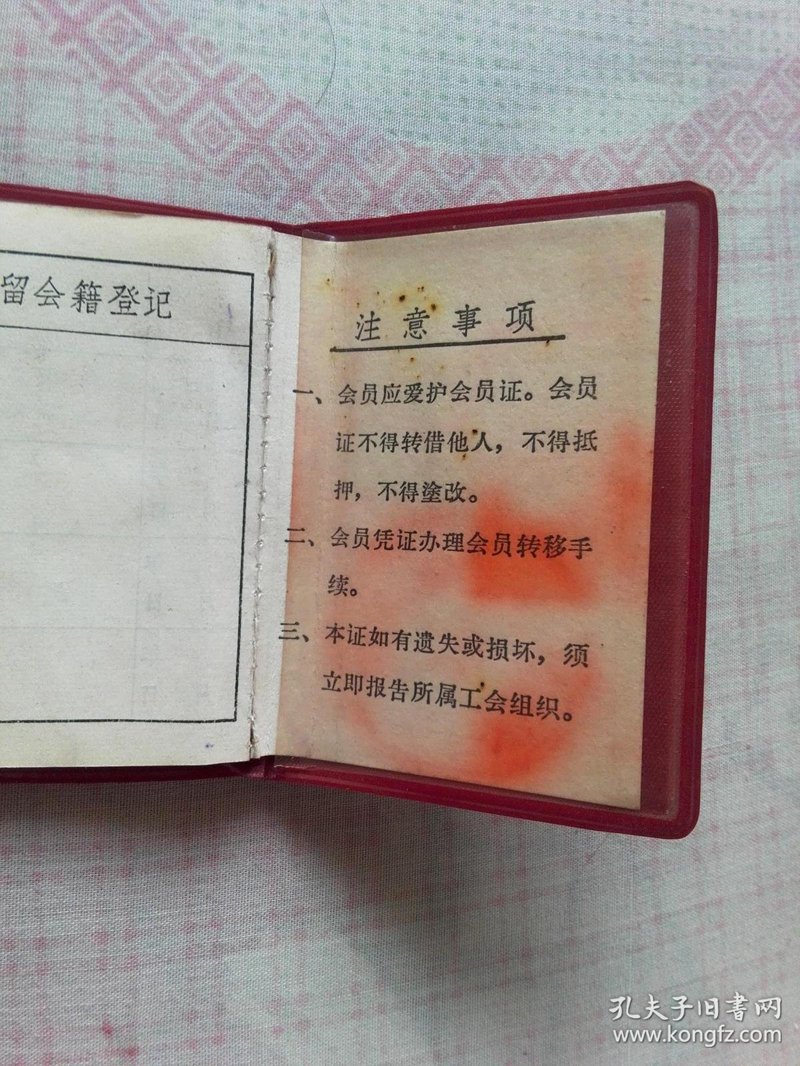 留会籍登记
注意事项
一、会员应爱护会员证。会员
证不得转借他人，不得抵
押，不得塗改。
二、会员凭证办理会员转移手
续。
三、本证如有遗失或损坏，须
立即报告所属工会组织。
孔夫子旧书网
www.kongfz.com